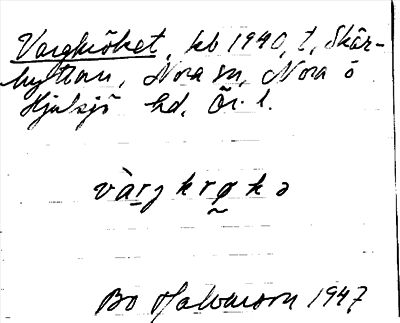 Vargkröket, kb 1940, t, Skär-
hyttan, Nora sn, Nora o
Hjulsjö hd, Ör. l.
vàrg krø̰kə
Bo Halvarson 1947